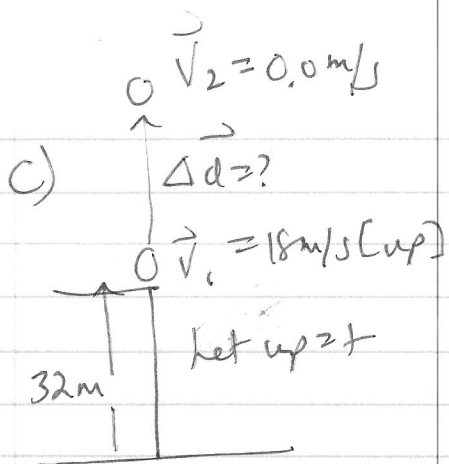 V⃗₂ = 0.0 m/s
c) Δd⃗ = ?
V⃗₁ = 18 m/s [up]
Let up = +
32m